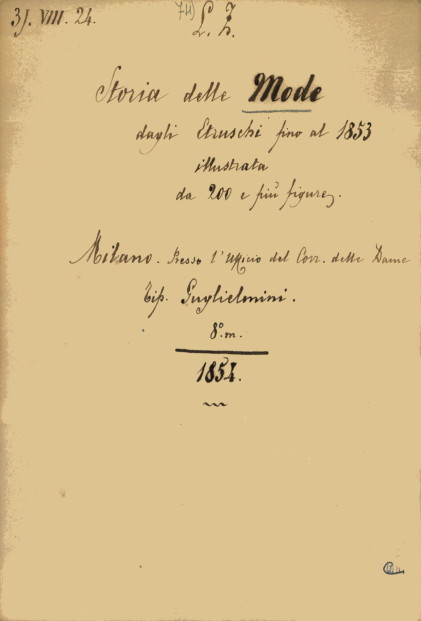 31. VIII. 24.
L. Z.
Storia delle Mode
dagli Etruschi fino al 1853
illustrata
da 200 e più figure.
Milano. Presso l'Ufficio del Corr. delle Dame
Tip. Guglielmini.
8.º m.
1854.